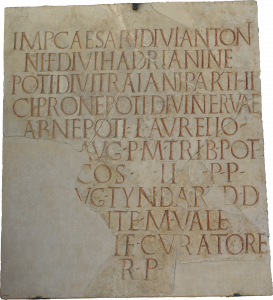 IMP CAESARI DIVI ANTON
NI F DIVI HADRIANI NE
POTI DIVI TRAIANI PARTHI
CI PRONEPOTI DIVI NERVAE
ABNEPOTI L AVRELIO
AVG P M TRIB POT
COS II P P
VG TYNDARI D D
NTE M VALE
IF CVRATORE
R P